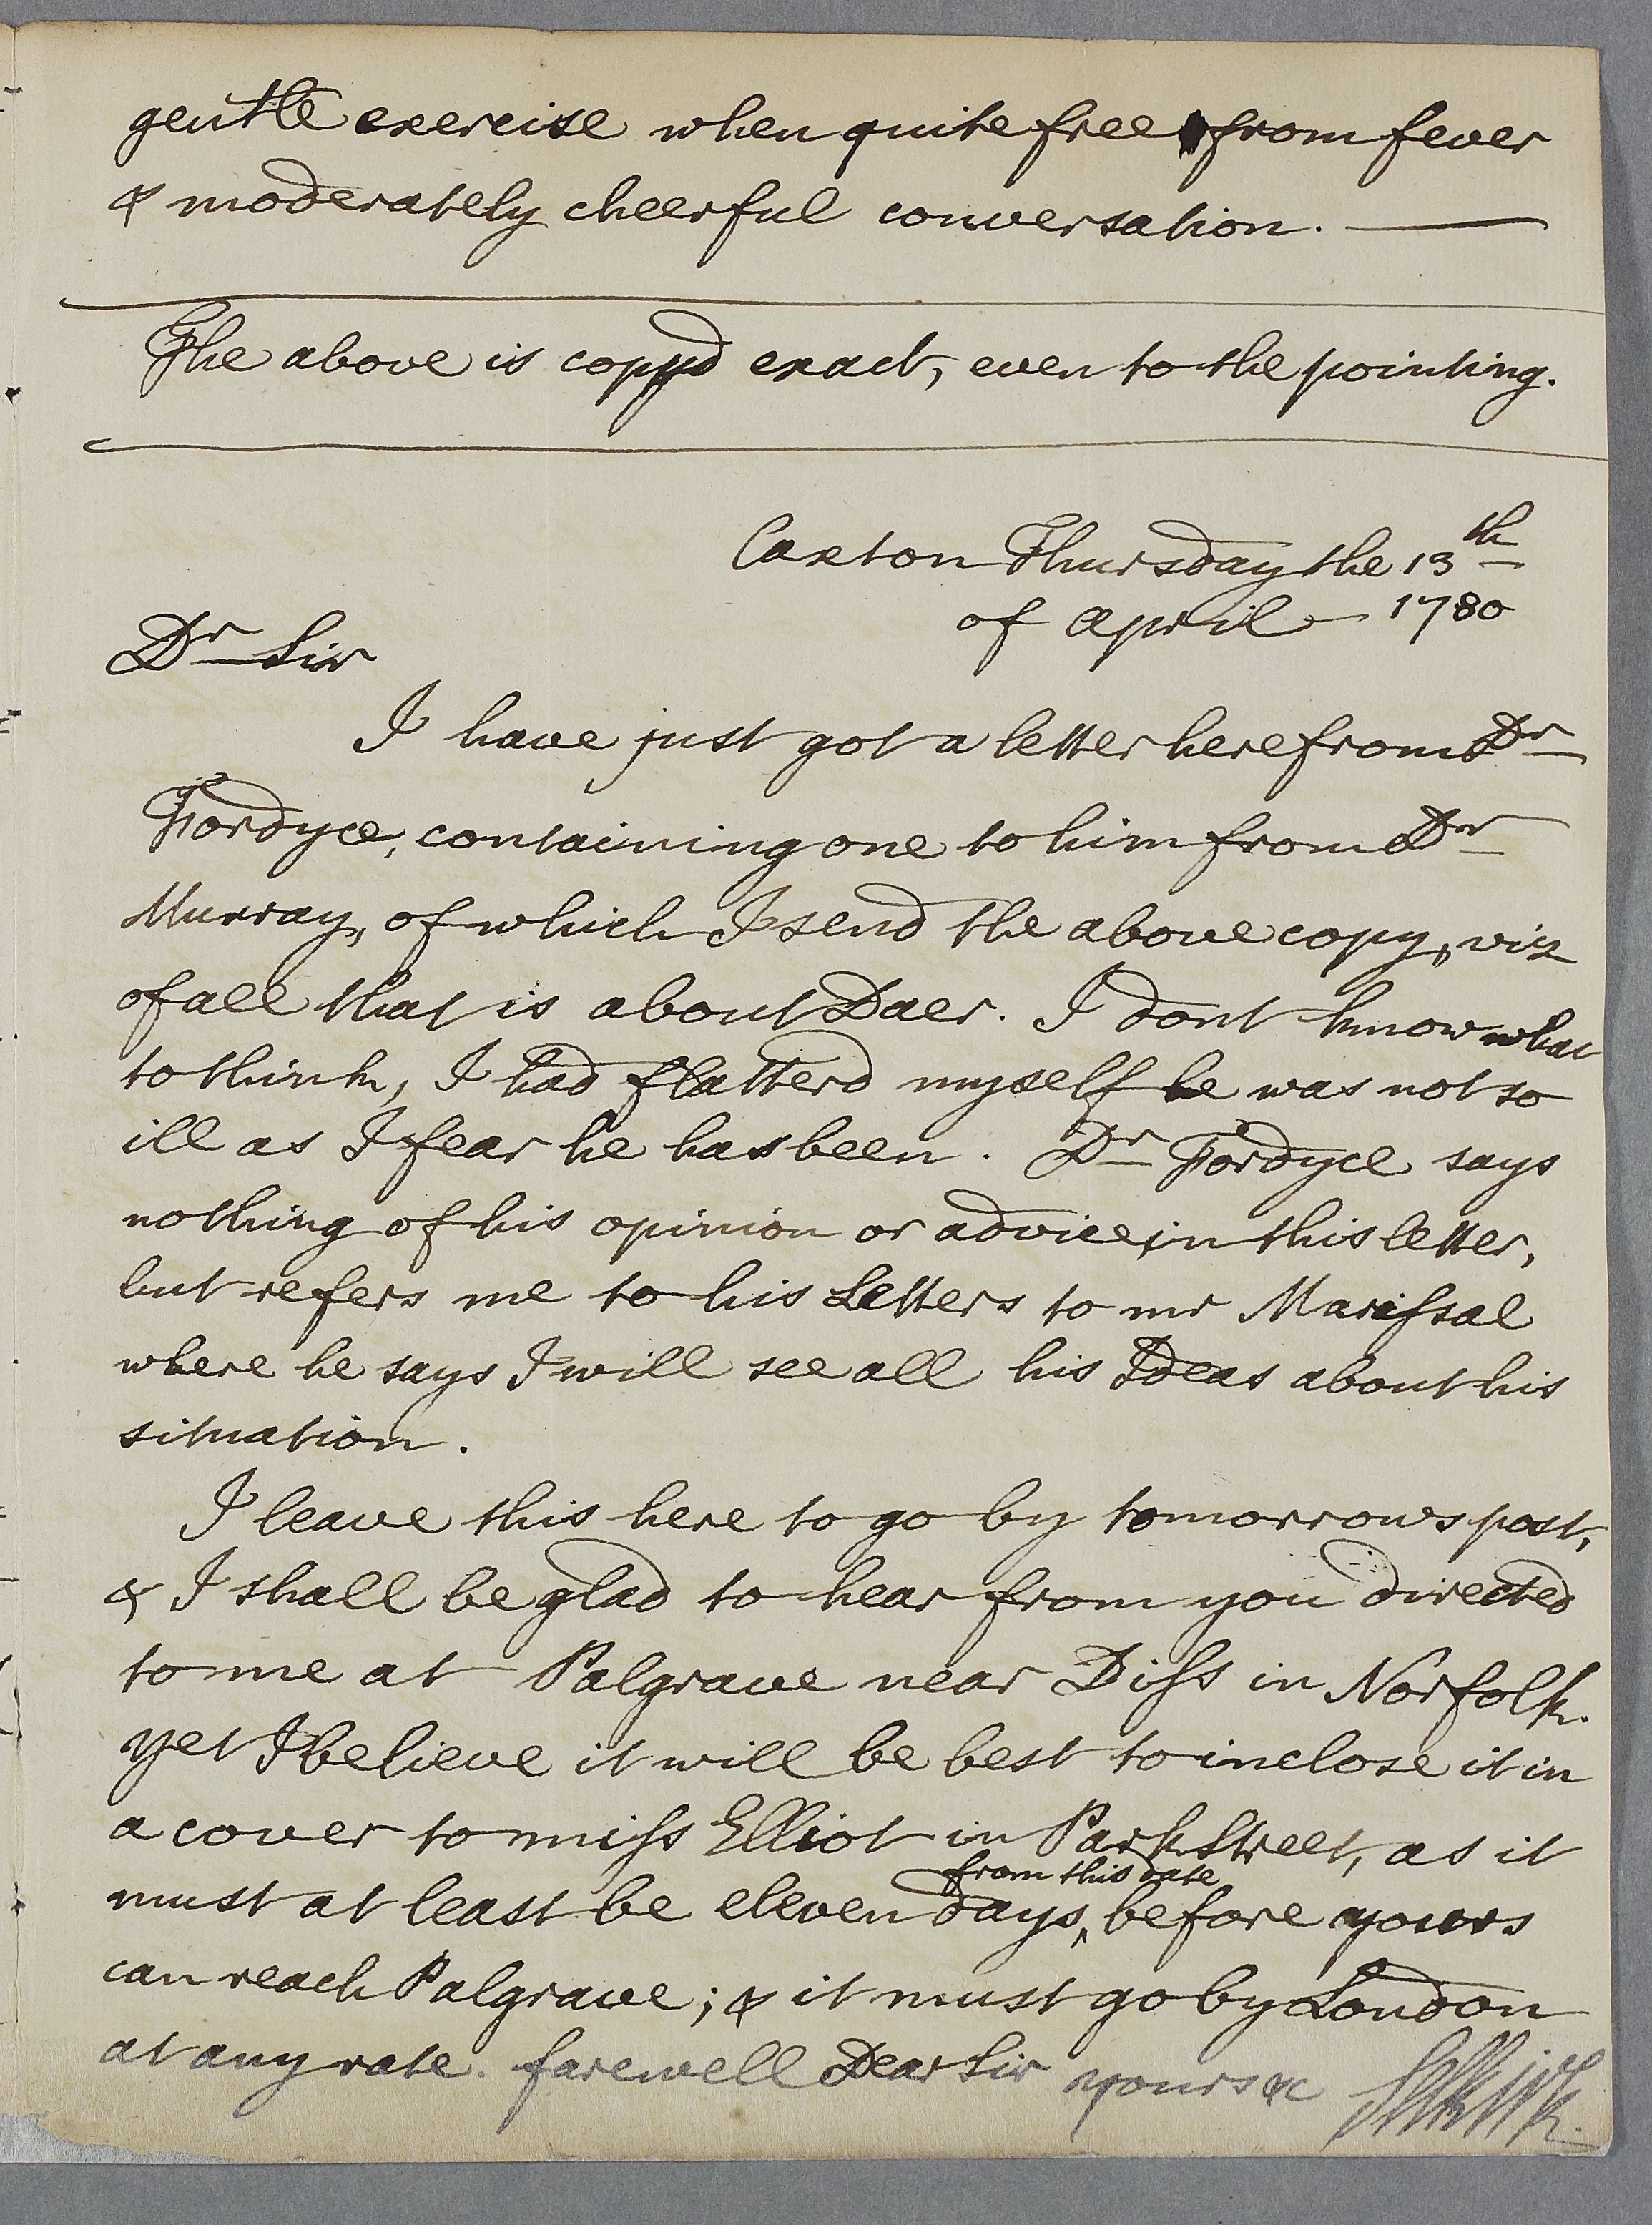 gentle exercise when quite free from fever
& moderately cheerful conversation.
The above is copyd exact, even to the pointing.
Caxton Thursday the 13th
of April 1780
Dr Sir
I have just got a letter here from Dr
Fordyce, containing one to him from Dr
Murray, of which I send the above copy, viz
of all that is about Daer. I dont know what
to think, I had flatterd myself he was not so
ill as I fear he has been. Dr Fordyce says
nothing of his opinion or advice in this letter,
but refers me to his Letters to mr Marißal
where he says I will see all his Ideas about his
situation.
I leave this here to go by tomorrows post,
& I shall be glad to hear from you directed
to me at Palgrave near Diſs in Norfolk.
yet I believe it will be best to inclose it in
a cover to miſs Elliot in Park Street, as it
from this date
must at least be eleven days, before yours
can reach Palgrave; & it must go by London
at any rate. farewell Dear Sir yours &c Selkirk.